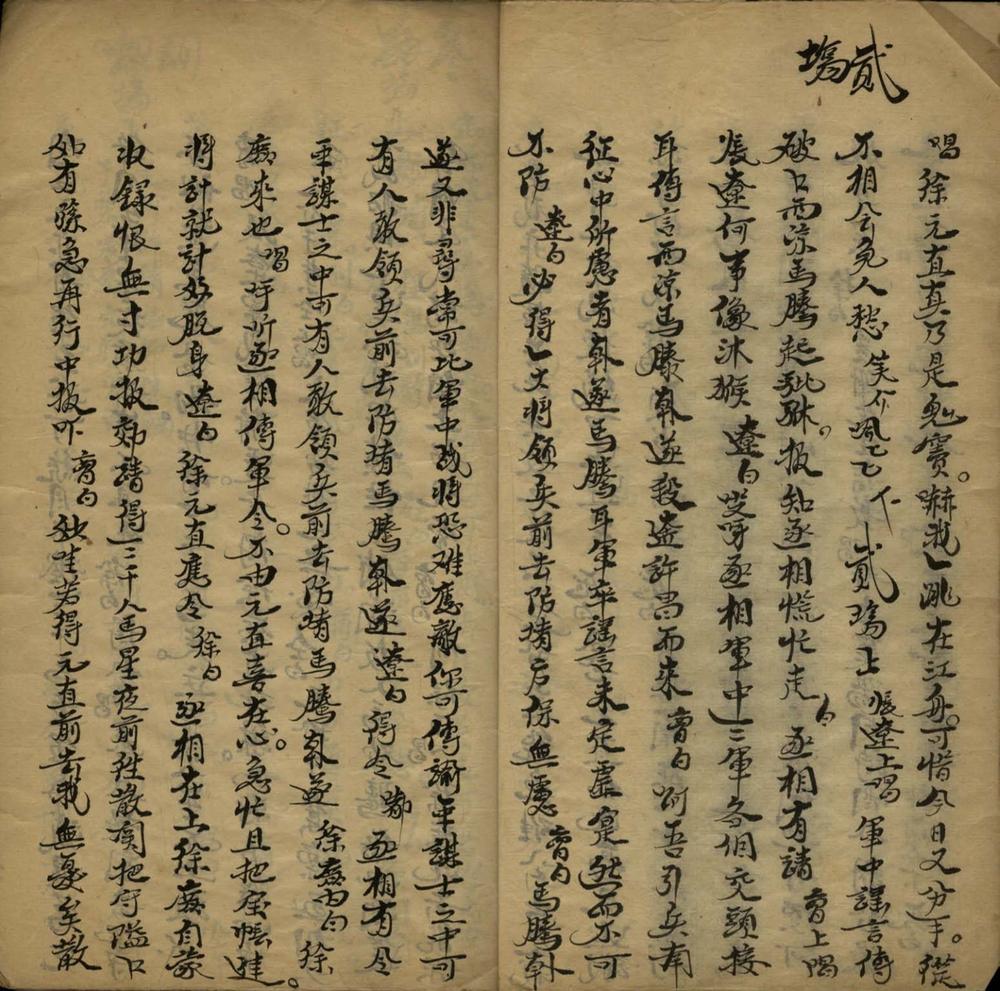 貳塲
唱徐元直真乃是鬼賓。嚇我一跳在江舟。可惜今日又分手。從
不相会免人愁 笑介 下 貳塲上 張遼上唱 軍中謠言傳
破口西凉馬騰起 報知丞相慌忙走 白 丞相有請 曹上唱
張遼何事像沐猴 遼白 丞相軍中三軍各個交頭接
耳傳言西凉馬騰韩遂殺盗許昌而来 曹白 啊吾引兵南
征心中所慮者韩遂馬騰耳軍卒謡言未定虚寔然而不可
不防 遼白 必得一大将領兵前去防堵方保無慮 曹白 馬騰韩
遂又非尋常可比軍中战将恐难應敵你可傳諭年謀士之中可
有人敢領兵前去防堵馬騰韩遂 遼白 得令 丞相有令
年謀士之中可有人敢領兵前去防堵馬騰韩遂 徐庶内白 徐
庶来也 唱 呼听丞相傳軍令。不由元直喜在心。急忙且把宝帳進。
将計就計好脱身 遼白 徐元直應令 徐白 丞相在上徐庶自蒙
收録恨無寸功报効請得三千人馬星夜前往散関把守隘口
如有緊急再行申报吓 曹白 若得元直前去我無憂矣散